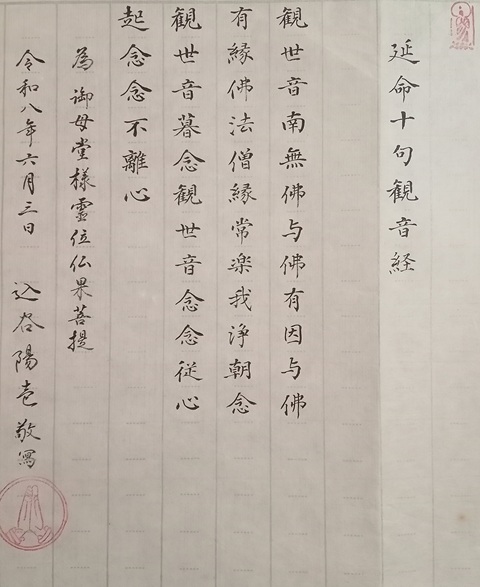 延命十句観音経
観世音南無佛与佛有因与佛
有縁佛法僧縁常楽我浄朝念
観世音暮念観世音念念従心
起念念不離心
為御母堂様霊位仏果菩提
令和八年六月三日 込谷陽壱敬寫